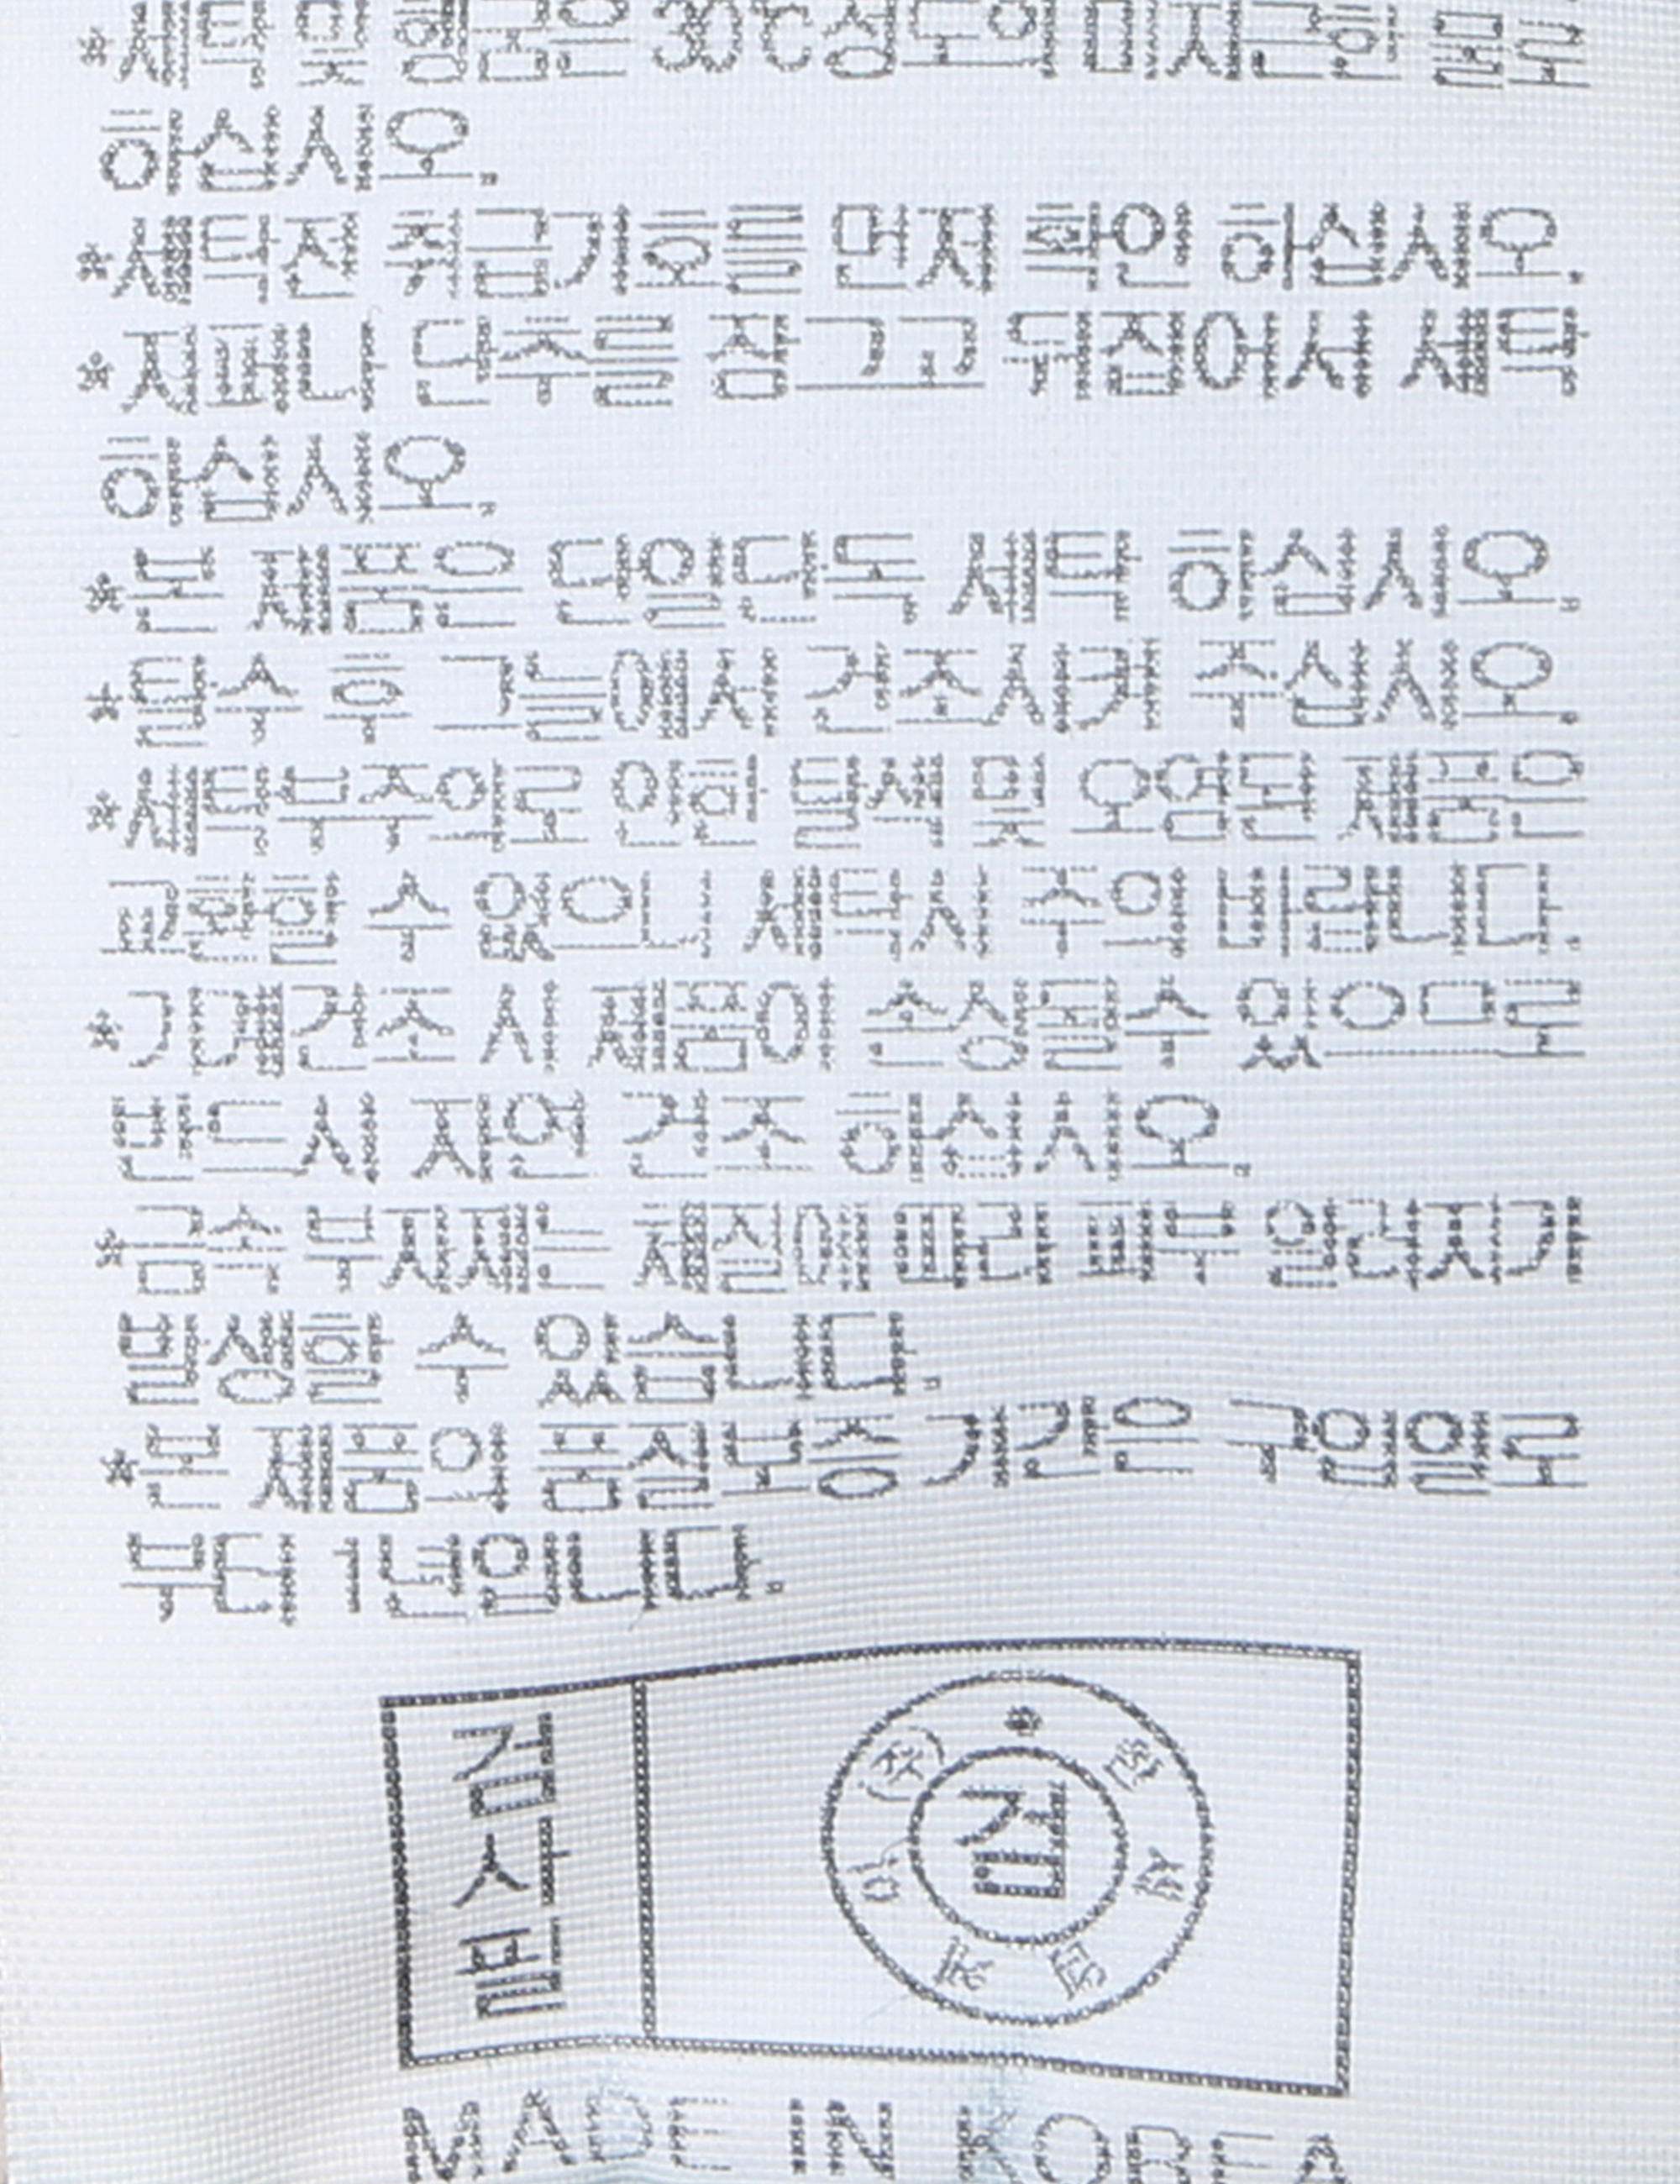 *세탁 및 헹굼은 30℃정도의 미지근한 물로
하십시오.
*세탁전 취급기호를 먼저 확인 하십시오.
*지퍼나 단추를 잠그고 뒤집어서 세탁
하십시오.
*본 제품은 단일단독 세탁 하십시오.
*탈수 후 그늘에서 건조시켜 주십시오.
*세탁부주의로 인한 탈색 및 오염된 제품은
교환할 수 없으니 세탁시 주의 바랍니다.
*기계건조 시 제품이 손상될수 있으므로
반드시 자연 건조 하십시오.
*금속 부자재는 체질에 따라 피부 알러지가
발생할 수 있습니다.
*본 제품의 품질보증기간은 구입일로
부터 1년입니다.
검사필
검
(주)
MADE IN KOREA